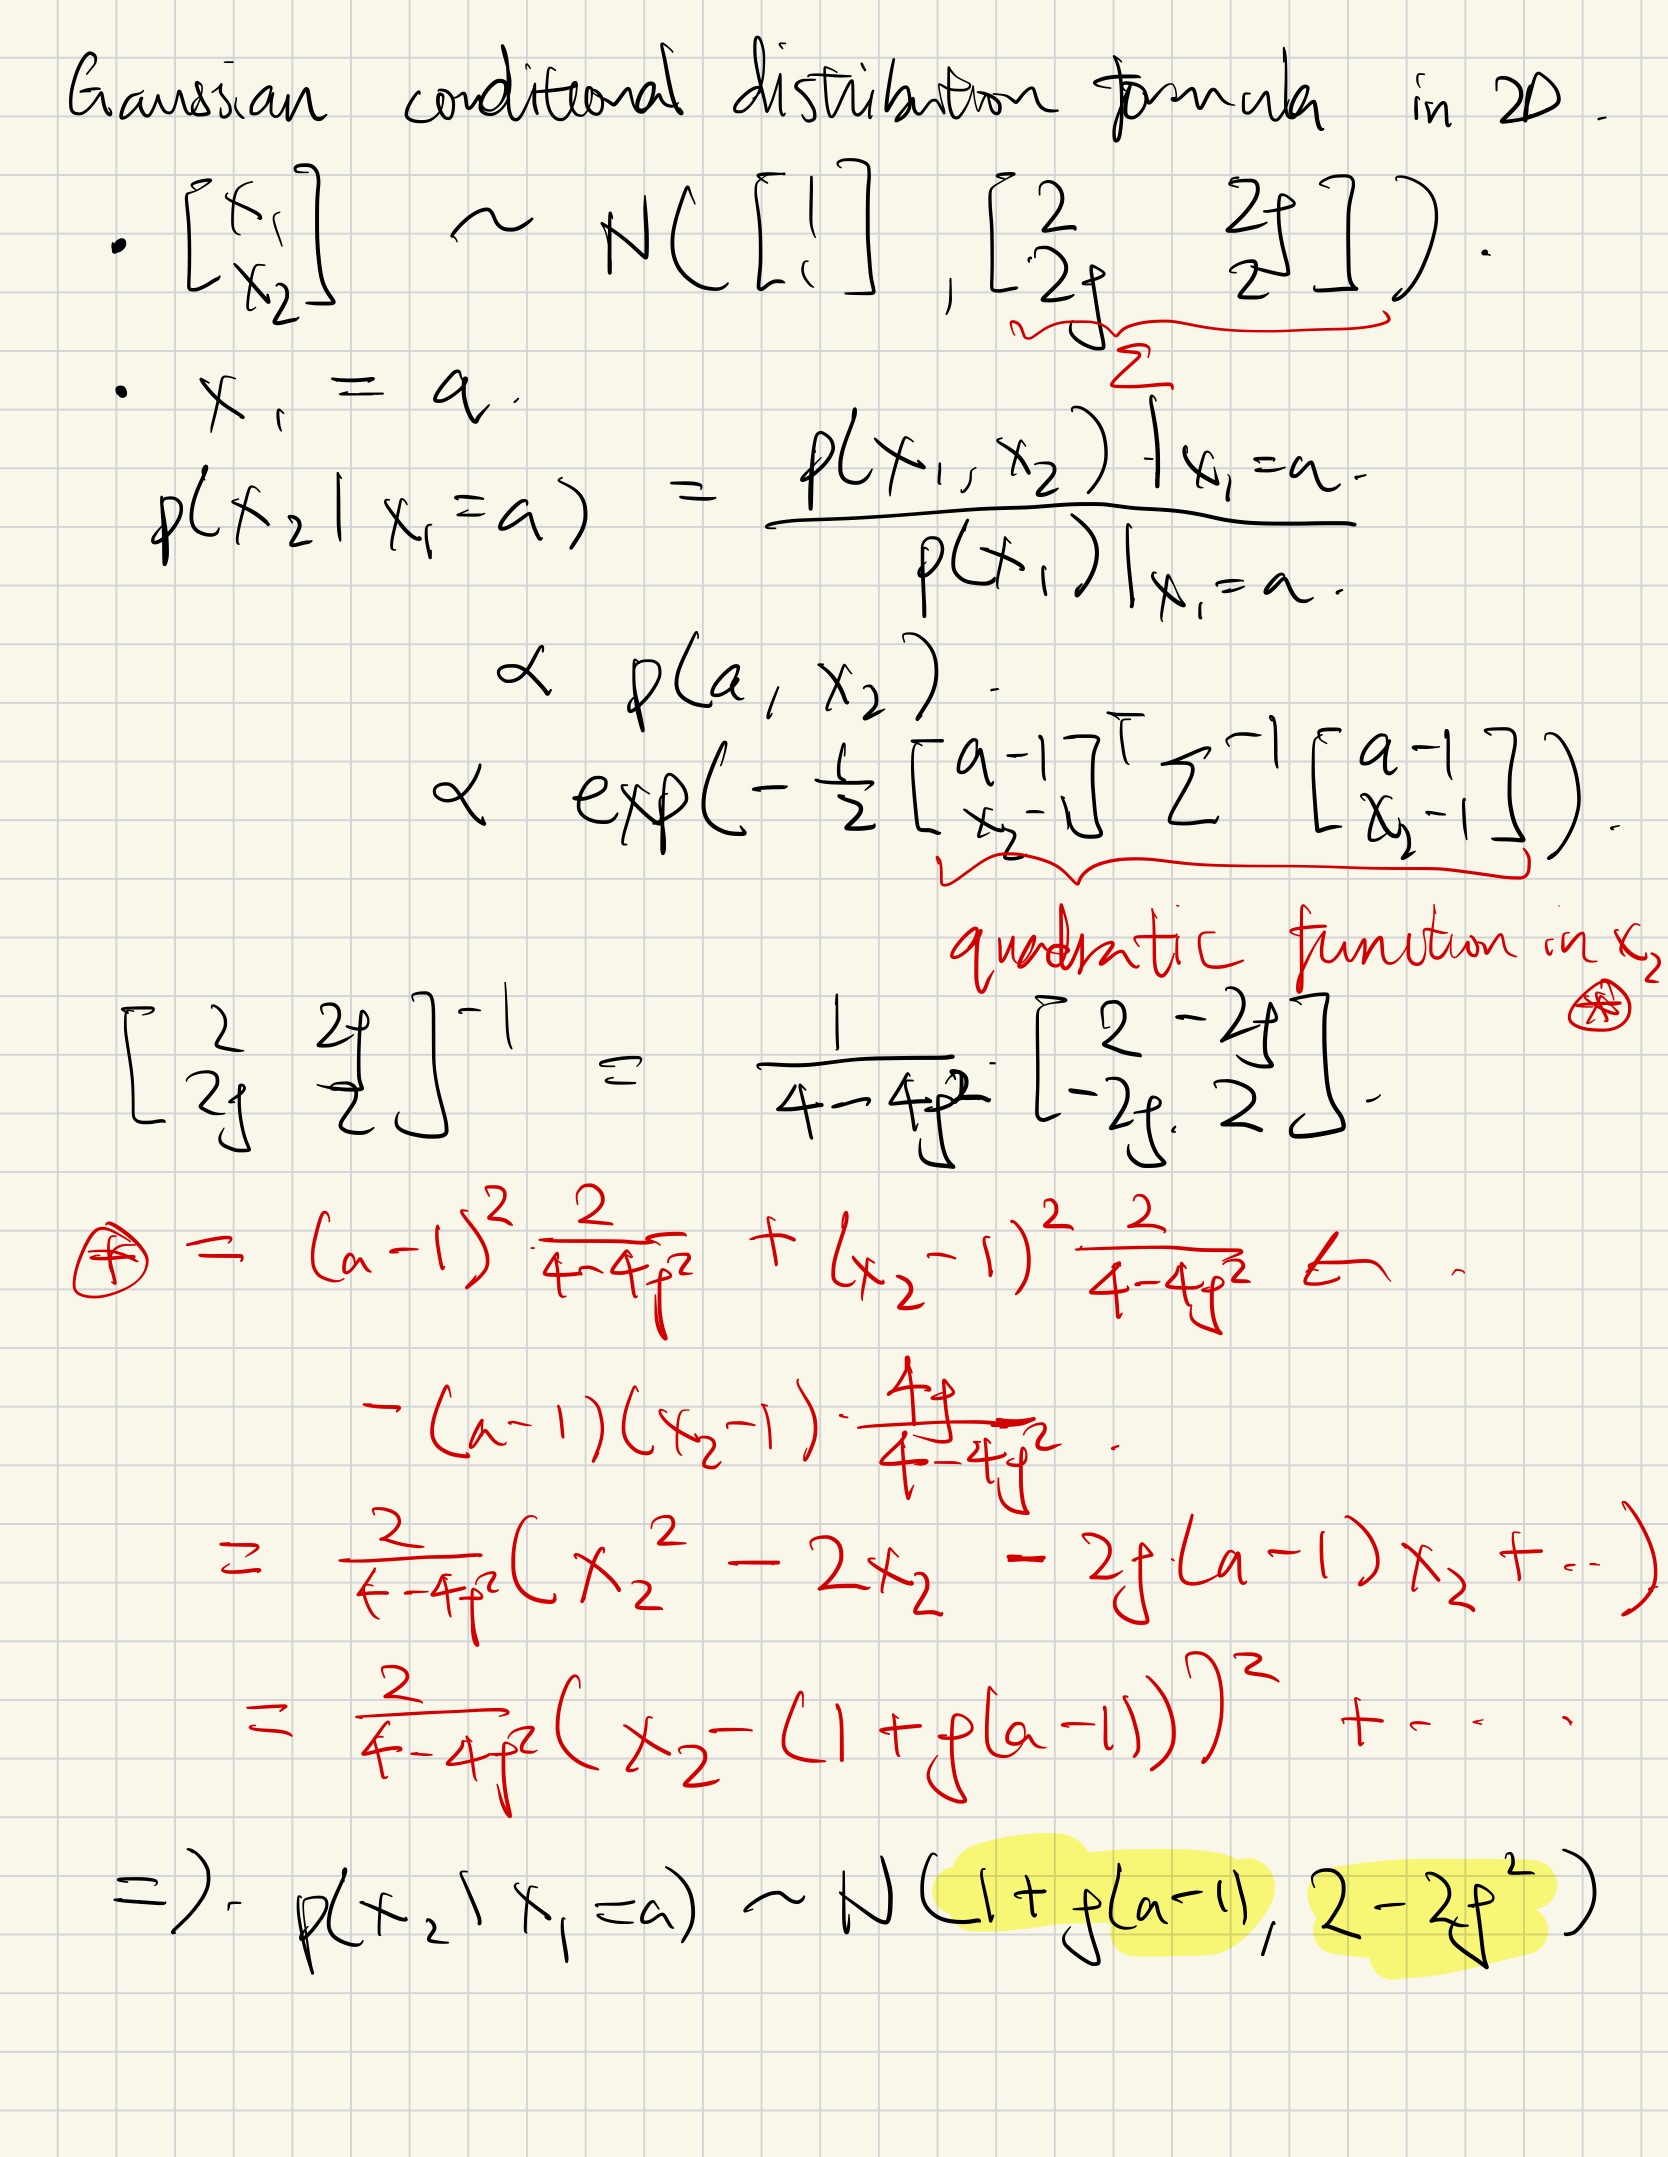 Gaussian conditional distribution formula in 2D.
• [x₁ x₂] ~ N([1 1], [2 2ρ 2ρ 2]).
Σ
• x₁ = a.
p(x₂ | x₁ = a) = p(x₁, x₂)|x₁=a. / p(x₁)|x₁=a.
∝ p(a, x₂).
∝ exp(- 1/2 [a-1 x₂-1]ᵀ Σ⁻¹ [a-1 x₂-1]).
quadratic function in x₂
⊛
[2 2ρ 2ρ 2]⁻¹ = 1/(4-4ρ²) · [2 -2ρ -2ρ. 2].
⊛ = (a-1)² · 2/(4-4ρ²) + (x₂-1)² 2/(4-4ρ²) ←
-(a-1)(x₂-1) · 4ρ/(4-4ρ²) .
= 2/(4-4ρ²) (x₂² - 2x₂ - 2ρ(a-1)x₂ + ...)
= 2/(4-4ρ²) (x₂ - (1+ρ(a-1)))² + ....
=> p(x₂ | x₁ = a) ~ N(1+ρ(a-1), 2-2ρ²)